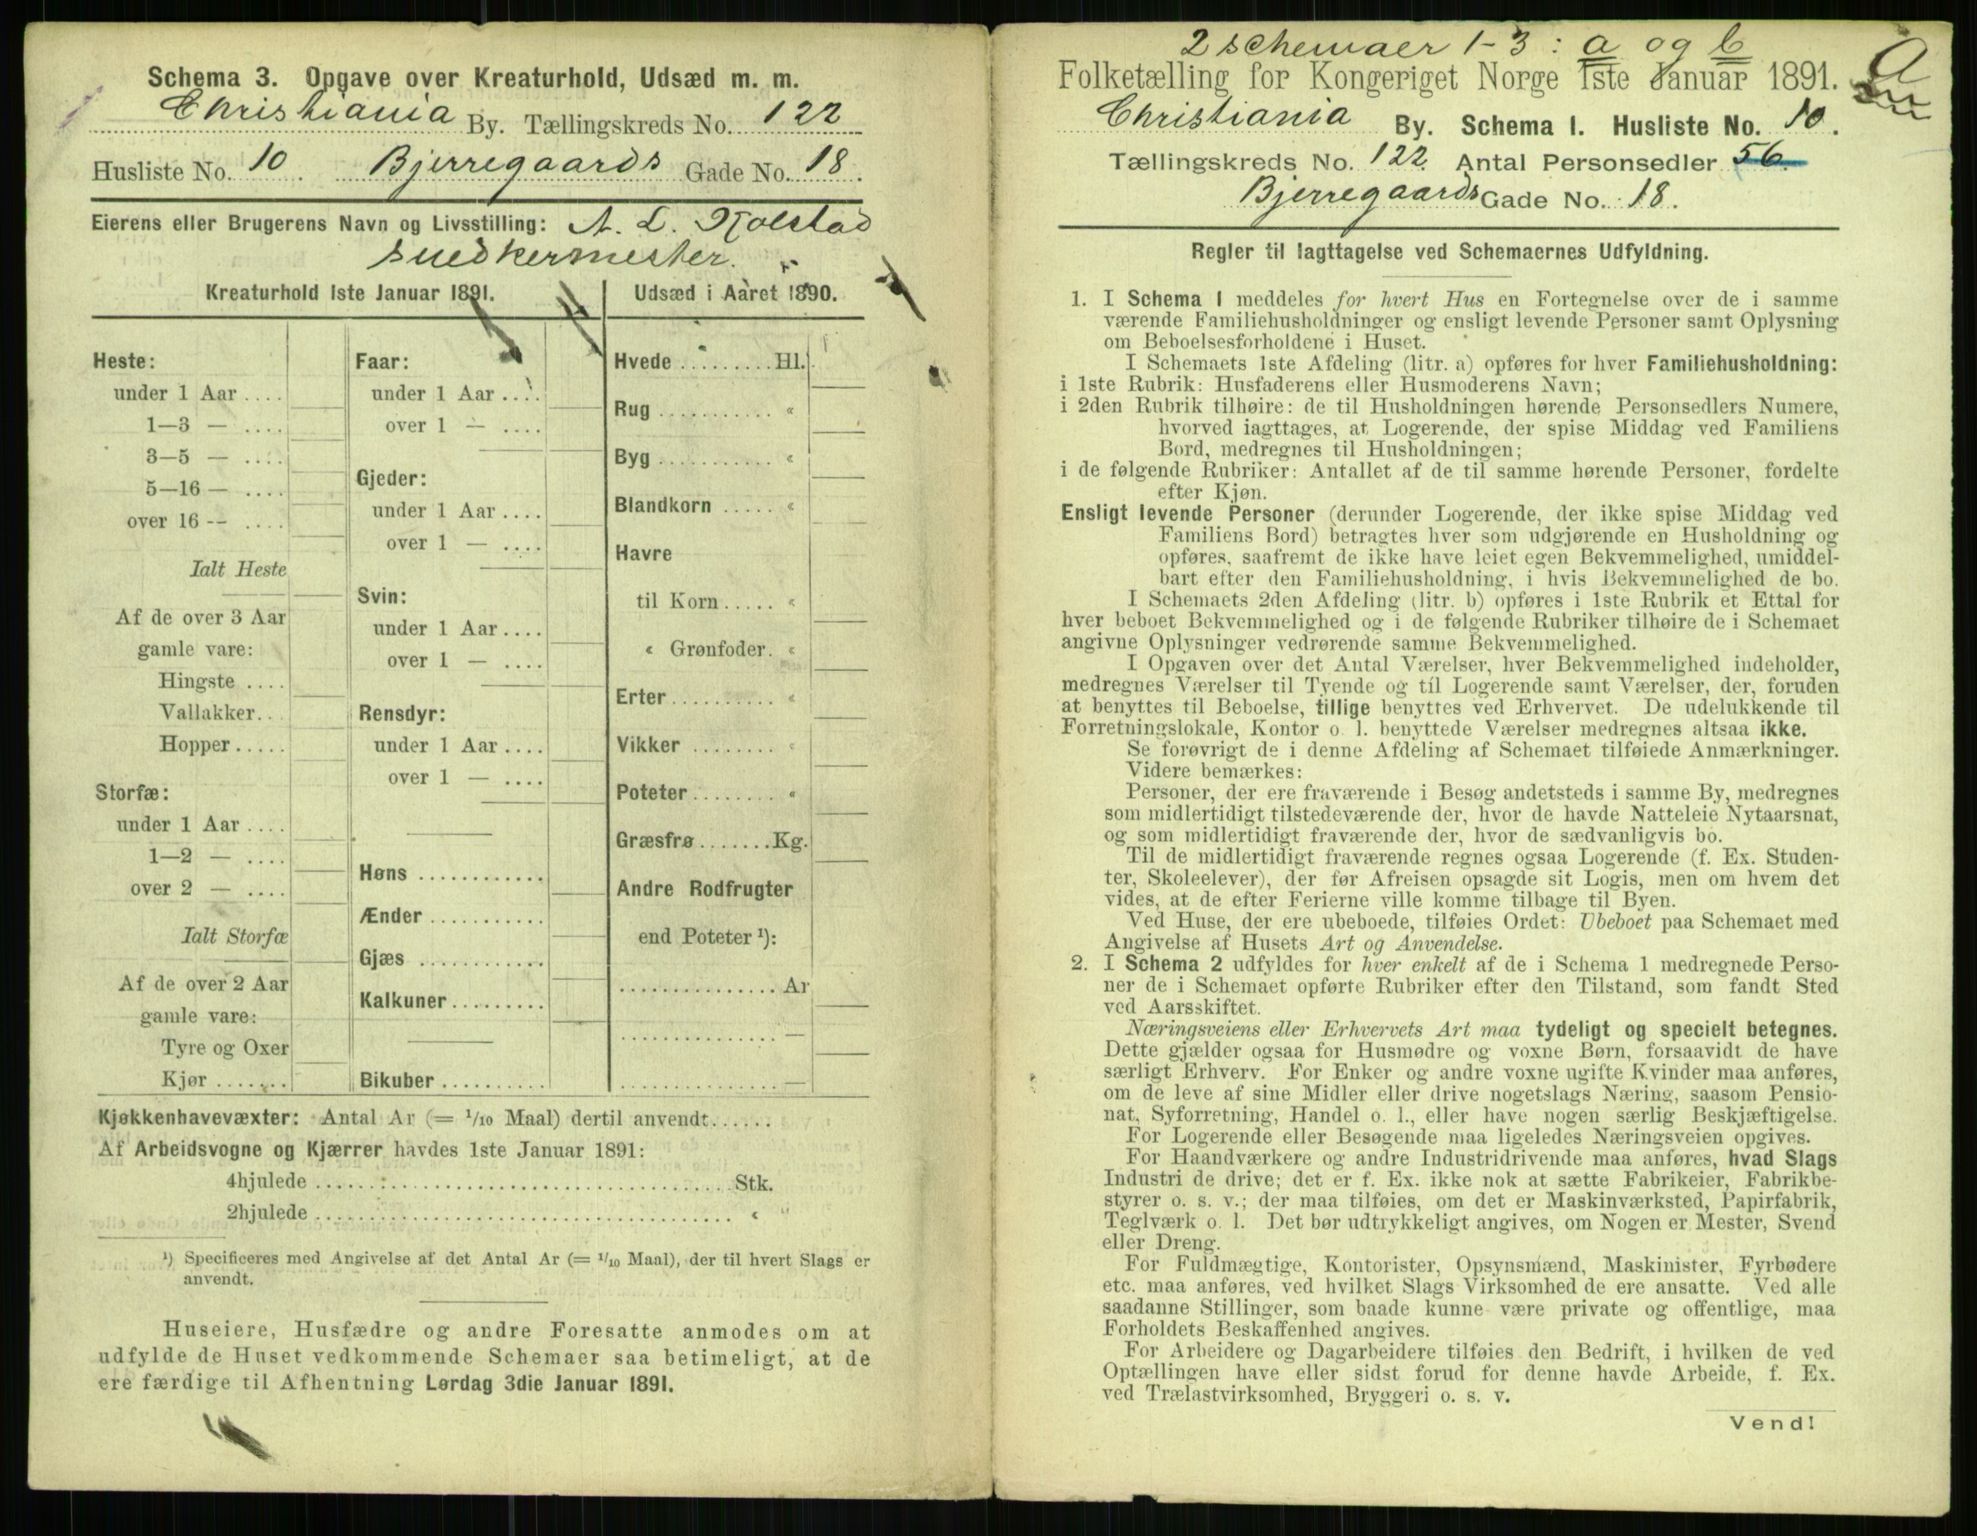 Schema 3. Opgave over Kreaturhold, Udsæd m. m.
Christiania By. Tællingskreds No. 122
Husliste No. 10. Bjerregaards Gade No. 18.
Eierens eller Brugerens Navn og Livsstilling: A. L. Kolstad
snedkermester.
Kreaturhold 1ste Januar 1891.
Heste:
under 1 Aar ....
1—3 — ....
3—5 — ....
5—16 — ....
over 16 -- ....
Ialt Heste
Af de over 3 Aar
gamle vare:
Hingste ....
Vallakker...
Hopper.....
Storfæ:
under 1 Aar ....
1—2 — ....
over 2 — ....
Ialt Storfæ
Af de over 2 Aar
gamle vare:
Tyre og Oxer
Kjør .......
Faar:
under 1 Aar ....
over 1 — ....
Gjeder:
under 1 Aar ....
over 1 — ....
Svin:
under 1 Aar ....
over 1 — ....
Rensdyr:
under 1 Aar ....
over 1 — ....
Høns ............
Ænder ...........
Gjæs ............
Kalkuner.........
Bikuber ..........
Udsæd i Aaret 1890.
Hvede .........Hl.
Rug ........... «
Byg ........... «
Blandkorn ..... «
Havre
til Korn ..... «
« Grønfoder. «
Erter.......... «
Vikker ........ «
Poteter........ «
Græsfrø .......Kg.
Andre Rodfrugter
end Poteter ¹):
...............Ar
............... —
............... —
Kjøkkenhavevæxter: Antal Ar (= 1/10 Maal) dertil anvendt......
Af Arbeidsvogne og Kjærrer havdes 1ste Januar 1891:
4hjulede ........................................Stk.
2hjulede ........................................ «
¹) Specificeres med Angivelse af det Antal Ar (= 1/10 Maal), der til hvert Slags er
anvendt.
Huseiere, Husfædre og andre Foresatte anmodes om at
udfylde de Huset vedkommende Schemaer saa betimeligt, at de
ere færdige til Afhentning Lørdag 3die Januar 1891.
2 schemaer 1-3: a og b
Folketælling for Kongeriget Norge 1ste Januar 1891.
Christiania By. Schema I. Husliste No. 10.
Tællingskreds No. 122 Antal Personsedler 56.
Bjerregaards Gade No. 18.
Regler til Iagttagelse ved Schemaernes Udfyldning.
1. I Schema 1 meddeles for hvert Hus en Fortegnelse over de i samme
værende Familiehusholdninger og ensligt levende Personer samt Oplysning
om Beboelsesforholdene i Huset.
I Schemaets 1ste Afdeling (litr. a) opføres for hver Familiehusholdning:
i 1ste Rubrik: Husfaderens eller Husmoderens Navn;
i 2den Rubrik tilhøire: de til Husholdningen hørende Personsedlers Numere,
hvorved iagttages, at Logerende, der spise Middag ved Familiens
Bord, medregnes til Husholdningen;
i de følgende Rubriker: Antallet af de til samme hørende Personer, fordelte
efter Kjøn.
Ensligt levende Personer (derunder Logerende, der ikke spise Middag ved
Familiens Bord) betragtes hver som udgjørende en Husholdning og
opføres, saafremt de ikke have leiet egen Bekvemmelighed, umiddel-
bart efter den Familiehusholdning, i hvis Bekvemmelighed de bo.
I Schemaets 2den Afdeling (litr. b) opføres i 1ste Rubrik et Ettal for
hver beboet Bekvemmelighed og i de følgende Rubriker tilhøire de i Schemaet
angivne Oplysninger vedrørende samme Bekvemmelighed.
I Opgaven over det Antal Værelser, hver Bekvemmelighed indeholder,
medregnes Værelser til Tyende og til Logerende samt Værelser, der, foruden
at benyttes til Beboelse, tillige benyttes ved Erhvervet. De udelukkende til
Forretningslokale, Kontor o. l. benyttede Værelser medregnes altsaa ikke.
Se forøvrigt de i denne Afdeling af Schemaet tilføiede Anmærkninger.
Videre bemærkes:
Personer, der ere fraværende i Besøg andetsteds i samme By, medregnes
som midlertidigt tilstedeværende der, hvor de havde Natteleie Nytaarsnat,
og som midlertidigt fraværende der, hvor de sædvanligvis bo.
Til de midlertidigt fraværende regnes ogsaa Logerende (f. Ex. Studen-
ter, Skoleelever), der før Afreisen opsagde sit Logis, men om hvem det
vides, at de efter Ferierne ville komme tilbage til Byen.
Ved Huse, der ere ubeboede, tilføies Ordet: Ubeboet paa Schemaet med
Angivelse af Husets Art og Anvendelse.
2. I Schema 2 udfyldes for hver enkelt af de i Schema 1 medregnede Perso-
ner de i Schemaet opførte Rubriker efter den Tilstand, som fandt Sted
ved Aarsskiftet.
Næringsveiens eller Erhvervets Art maa tydeligt og specielt betegnes.
Dette gjælder ogsaa for Husmødre og voxne Børn, forsaavidt de have
særligt Erhverv. For Enker og andre voxne ugifte Kvinder maa anføres,
om de leve af sine Midler eller drive nogetslags Næring, saasom Pensio-
nat, Syforretning, Handel o. l., eller have nogen særlig Beskjæftigelse.
For Logerende eller Besøgende maa ligeledes Næringsveien opgives.
For Haandværkere og andre Industridrivende maa anføres, hvad Slags
Industri de drive; det er f. Ex. ikke nok at sætte Fabrikeier, Fabrikbe-
styrer o. s. v.; der maa tilføies, om det er Maskinværksted, Papirfabrik,
Teglværk o. l. Det bør udtrykkeligt angives, om Nogen er Mester, Svend
eller Dreng.
For Fuldmægtige, Kontorister, Opsynsmænd, Maskinister, Fyrbødere
etc. maa anføres, ved hvilket Slags Virksomhed de ere ansatte. Ved alle
saadanne Stillinger, som baade kunne være private og offentlige, maa
Forholdets Beskaffenhed angives.
For Arbeidere og Dagarbeidere tilføies den Bedrift, i hvilken de ved
Optællingen have eller sidst forud for denne havde Arbeide, f. Ex.
ved Trælastvirksomhed, Bryggeri o. s. v.
Vend!